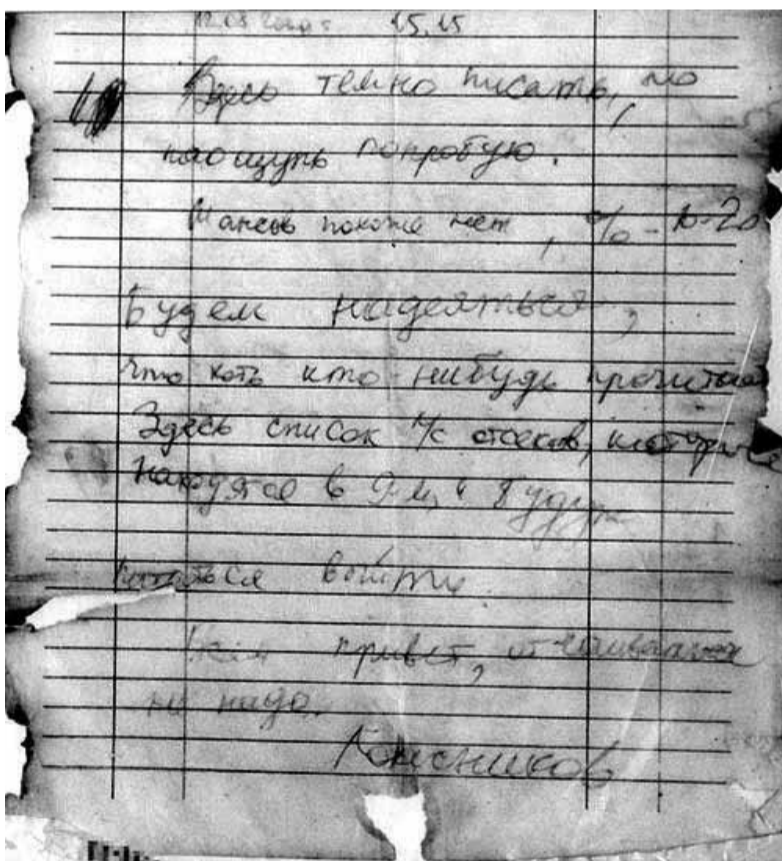 12.08.2000г. 15.15
Здесь темно писать, но
наощупь попробую.
Шансов похоже нет, % - 10-20
Будем надеяться,
что хоть кто-нибудь прочитает
Здесь список л/с отсеков, которые
находятся в 9-м и будут
пытаться выйти.
Всем привет, отчаиваться
не надо.
Колесников